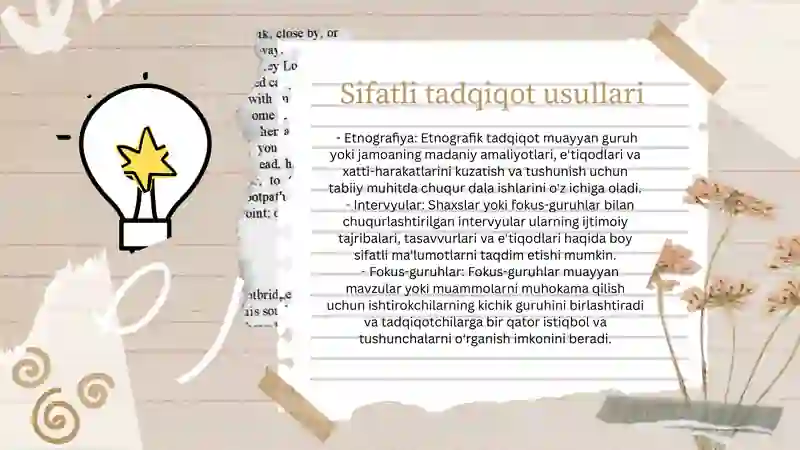 ık, close by, or
way.
ey Lo
ed ca
with
ome
her a
you
ead, h
to
ootpath
oint; c
Sifatli tadqiqot usullari
- Etnografiya: Etnografik tadqiqot muayyan guruh
yoki jamoaning madaniy amaliyotlari, e'tiqodlari va
xatti-harakatlarini kuzatish va tushunish uchun
tabiiy muhitda chuqur dala ishlarini o'z ichiga oladi.
- Intervyular: Shaxslar yoki fokus-guruhlar bilan
chuqurlashtirilgan intervyular ularning ijtimoiy
tajribalari, tasavvurlari va e'tiqodlari haqida boy
sifatli ma'lumotlarni taqdim etishi mumkin.
- Fokus-guruhlar: Fokus-guruhlar muayyan
mavzular yoki muammolarni muhokama qilish
uchun ishtirokchilarning kichik guruhini birlashtiradi
va tadqiqotchilarga bir qator istiqbol va
tushunchalarni o'rganish imkonini beradi.